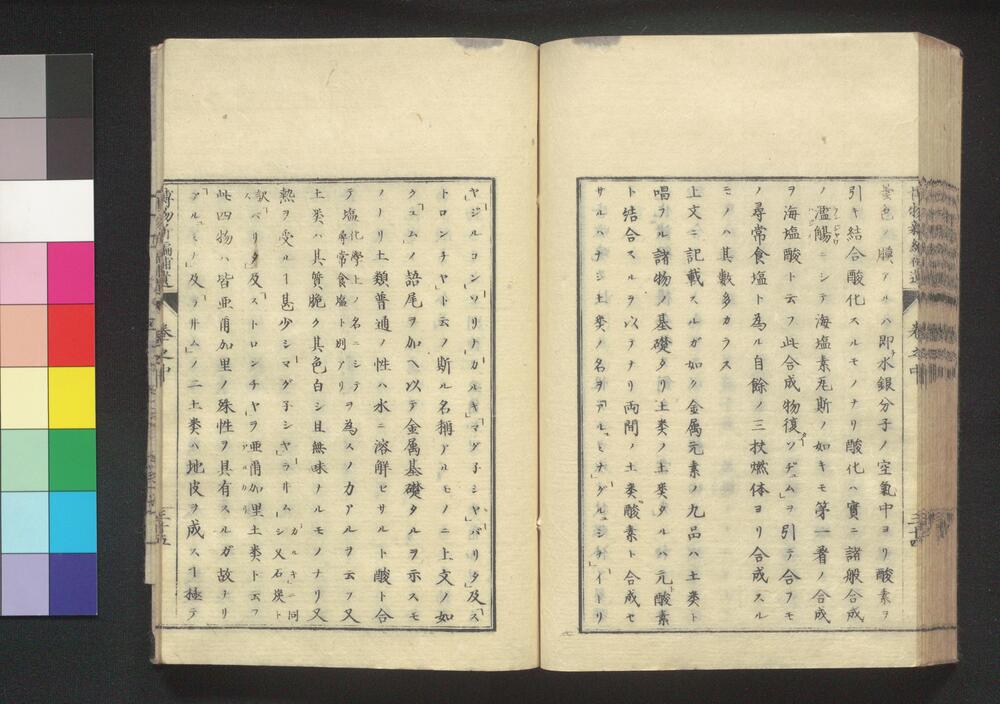 色ノ膜アルハ即水銀分子ノ空氣中ヨリ酸素ヲ
引キ結合酸化スルモノナリ酸化ハ實ニ諸般合成
ノ濫觴ニシテ海塩素瓦斯ノ如キモ第一着ノ合成
ヲ海塩酸ト云フ此合成物復ソヂユムヲ引テ合フモ
ノ尋常食塩ト為ル自餘ノ三扶燃体ヨリ合成スル
モノハ其數多カラス
上文ニ記載スルガ如ク金属元素ノ九品ハ土类ト
唱フル諸物ノ基礎タリ土类ノ土类タルハ元酸素
ト結合スルヲ以テナリ両間ノ土类酸素ト合成セ
サルハナシ土类ノ名ヲ「アルミナ」「グルシナ」「イトリ
巻之中
三十四
ヤ」「ジルコン」「ソリナ」「カルキ」「マグ子シヤ」「バリタ」及「ス
トロンチヤ」ト云ノ斯ル名稱アルモノニ上文ノ如
ク「ユム」ノ語尾ヲ加ヘ以テ金属基礎タルヲ示スモ
ノナリ土類普通ノ性ハ水ニ溶解セサルト酸ト合
テ塩化學上ノ名ニシテ尋常食塩ト別アリヲ為スノ力アルヲ云フ又
土类ハ其質脆ク其色白シ且無味ナルモノナリ又
熱ヲ受ルヿ甚少シマグ子シヤ「ラリム「カルキ」ニ同シ又石炭ト
訳ス「バリタ」及「ストロンチヤ」ヲ亜爾加里土类ト云フ
此四物ハ皆亜爾加里ノ殊性ヲ具有スルガ故ナリ
「アルミナ」及「リム」ノ二土類ハ地皮ヲ成スヿ極テ
巻之中
三十五